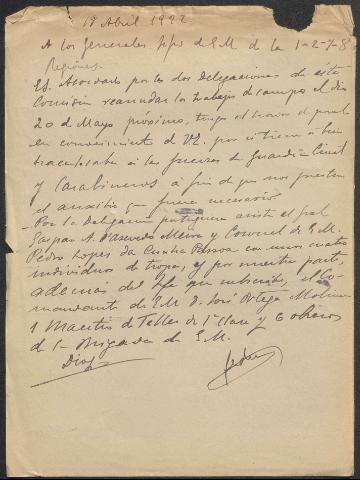 18 Abril 1922
A los Generales Jefes de E.M. de la 1-2-7-8
Regiones.
Acordado por las dos delegaciones de esta
Comisión reanudar los trabajos de campo el día
20 de Mayo próximo, tengo el honor de
en conocimiento de V.E. por si tiene a bien
a las fuerzas de Guardia Civil
y Carabineros a fin de que nos presten
el auxilio que fuere necesario.
- Por la delegación portuguesa asiste el Gral
Gaspar A. d'Azevedo Meira y Coronel de E.M.
Pedro Lopes da Cunha Pessoa con unos cuatro
individuos de tropa, y por nuestra parte,
además del Jefe que subscribe, el Co-
mandante de E.M. D. José Ortega
1 Maestro de Taller de 1ª clase y 6 obreros
de la Brigada de E.M.
Dios